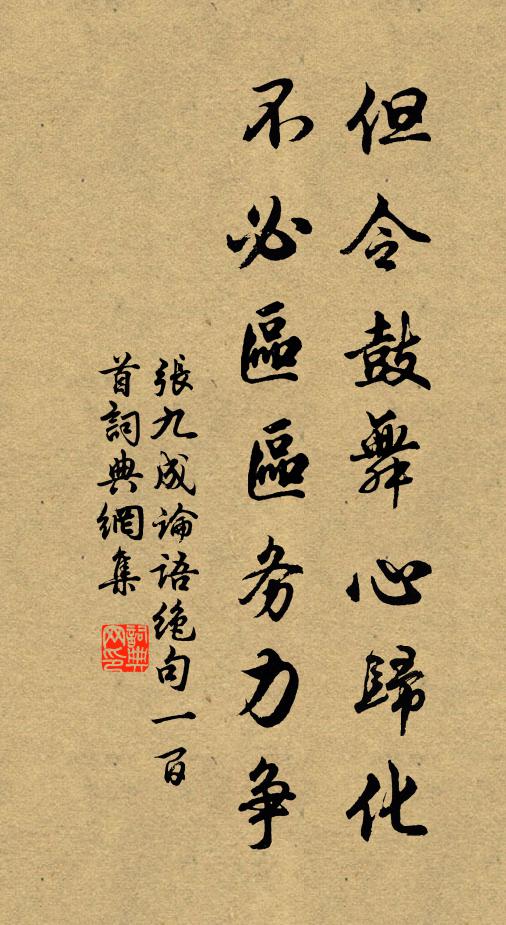 但令鼓舞心歸化
不必區區务力争
張九成論語绝句一百
首詞典網集
詞典
网印